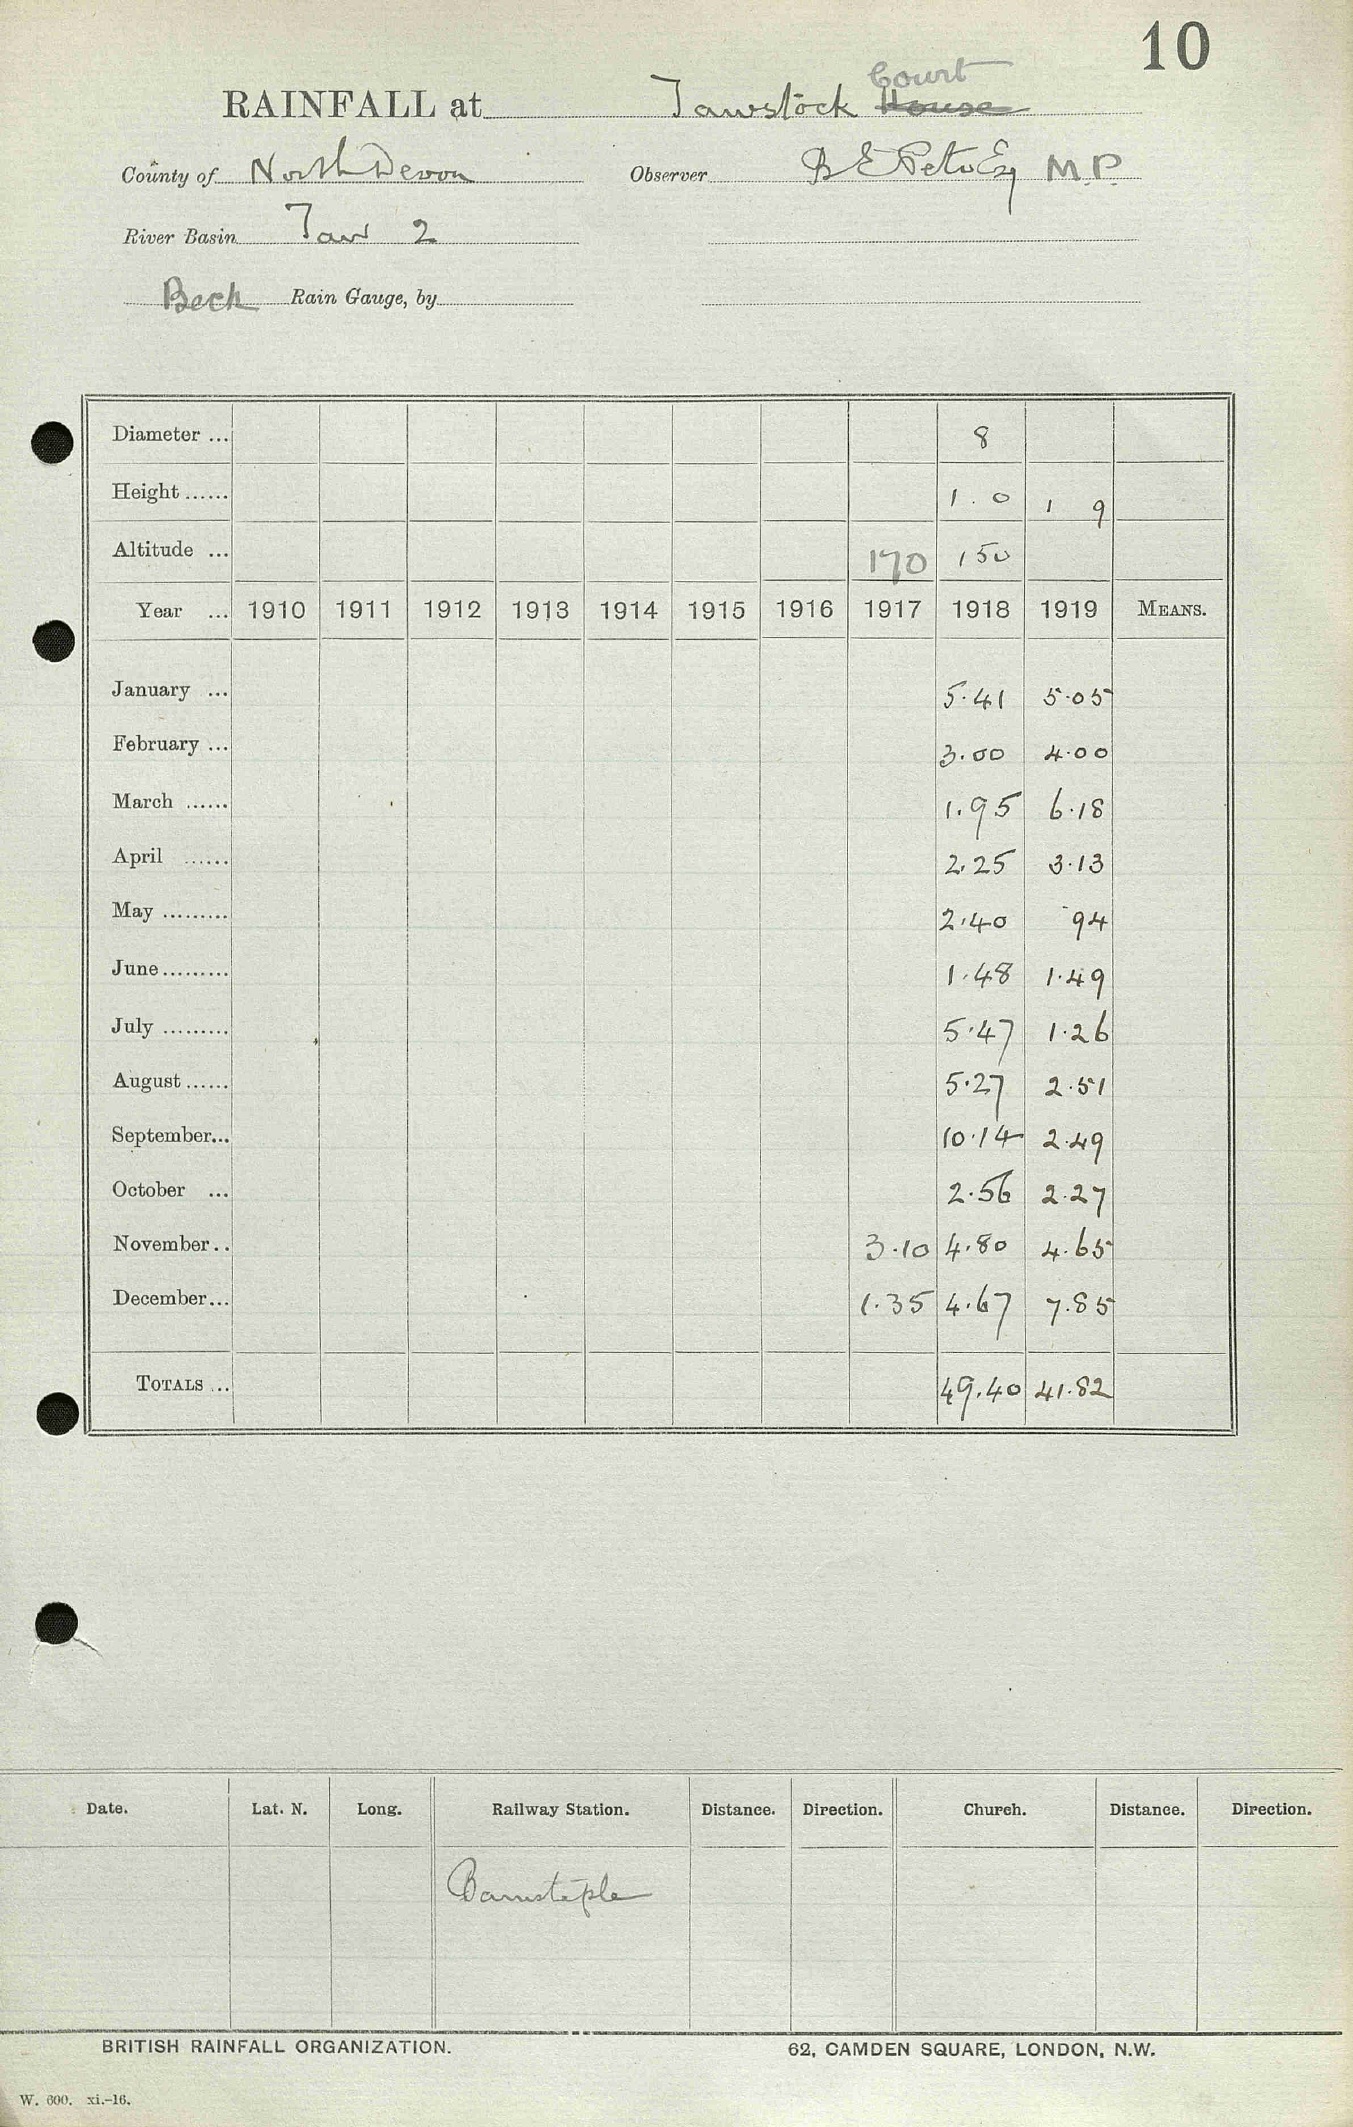 10
Court
RAINFALL at Tawstock House
County of North Devon Observer B E Peto Esq M.P.
River Basin Taw 2
Beck Rain Gauge, by
Diameter ... 8
Height ...... 1.0 1 9
Altitude ... 170 150
Year ... 1910 1911 1912 1913 1914 1915 1916 1917 1918 1919 MEANS.
January ... 5.41 5.05
February ... 3.00 4.00
March ...... 1.95 6.18
April ...... 2.25 3.13
May ......... 2.40 .94
June ......... 1.48 1.49
July ......... 5.47 1.26
August ...... 5.27 2.51
September... 10.14 2.49
October ... 2.56 2.27
November.. 3.10 4.80 4.65
December... 1.35 4.67 7.85
TOTALS ... 49.40 41.82
Date. Lat. N. Long. Railway Station. Distance. Direction. Church. Distance. Direction.
Barnstaple
BRITISH RAINFALL ORGANIZATION. 62, CAMDEN SQUARE, LONDON, N.W.
W. 600. xi.-16.